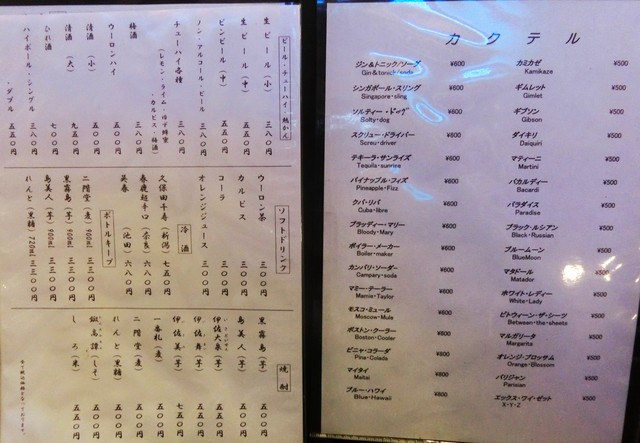 ビール・チューハイ・熱かん
生ビール（小） 三八〇円
生ビール（中） 五五〇円
ビンビール（中） 五五〇円
ノン・アルコール・ビール 三八〇円
チューハイ各種 三八〇円
梅酒 三八〇円
ウーロンハイ 五〇〇円
清酒（小） 五〇〇円
清酒（大） 九五〇円
ひれ酒 七〇〇円
ハイボール・シングル 三八〇円
・ダブル 五五〇円
ソフトドリンク
ウーロン茶 三〇〇円
カルピス 三〇〇円
コーラ 三〇〇円
オレンジジュース 三〇〇円
冷酒
久保田千寿（新潟） 七五〇円
春鹿超辛口（奈良） 六八〇円
呉春（池田） 六八〇円
ボトルキープ
二階堂（麦）900ml 三三〇〇円
黒霧島（芋）900ml 三三〇〇円
島美人（芋）900ml 三三〇〇円
れんと（黒糖）720ml 三三〇〇円
焼酎
黒霧島（芋） 五〇〇円
島美人（芋） 五〇〇円
伊佐大泉（芋） 五五〇円
伊佐舞（芋） 五五〇円
伊佐美（芋） 七五〇円
一番札（麦） 五〇〇円
二階堂（麦） 五〇〇円
れんと（黒糖） 五〇〇円
鍛高譚（しそ） 五〇〇円
しろ（米） 五五〇円
カクテル
ジン&トニック/ソーダ ¥600
Gin&tonick/soda
シンガポール・スリング ¥600
Singapore・sling
ソルティー・ドッグ ¥600
Salty・dog
スクリュー・ドライバー ¥600
Screu・driver
テキーラ・サンライズ ¥600
Tequila・sunrise
パイナップル・フィズ ¥600
Pineapple・Fizz
クバ・リバ ¥600
Cuba・libre
ブラッディー・マリー ¥600
Bloody・Mary
ボイラー・メーカー ¥600
Boiler・maker
カンパリ・ソーダー ¥600
Campery・soda
マミー・テーラー ¥600
Mamie・Taylor
モスコ・ミュール ¥600
Moscow・Mule
ボストン・クーラー ¥600
Boston・Cooler
ピニャ・コラーダ ¥600
Pina・Colada
マイタイ ¥600
Maitai
ブルー・ハワイ ¥600
Blue・Hawaii
カミカゼ ¥500
Kamikaze
ギムレット ¥500
Gimlet
ギブソン ¥500
Gibson
ダイキリ ¥500
Daiquiri
マティーニ ¥500
Martini
バカルディー ¥500
Bacardi
パラダイス ¥500
Paradise
ブラック・ルシアン ¥500
Black・Russian
ブルームーン ¥500
BlueMoon
マタドール ¥500
Matador
ホワイト・レディー ¥500
White・Lady
ビトウィーン・ザ・シーツ ¥500
Between・the・sheets
マルガリータ ¥500
Margarita
オレンジ・ブロッサム ¥500
Orange・Blossom
パリジャン ¥500
Parisian
エックス・ワイ・ゼット ¥500
X・Y・Z